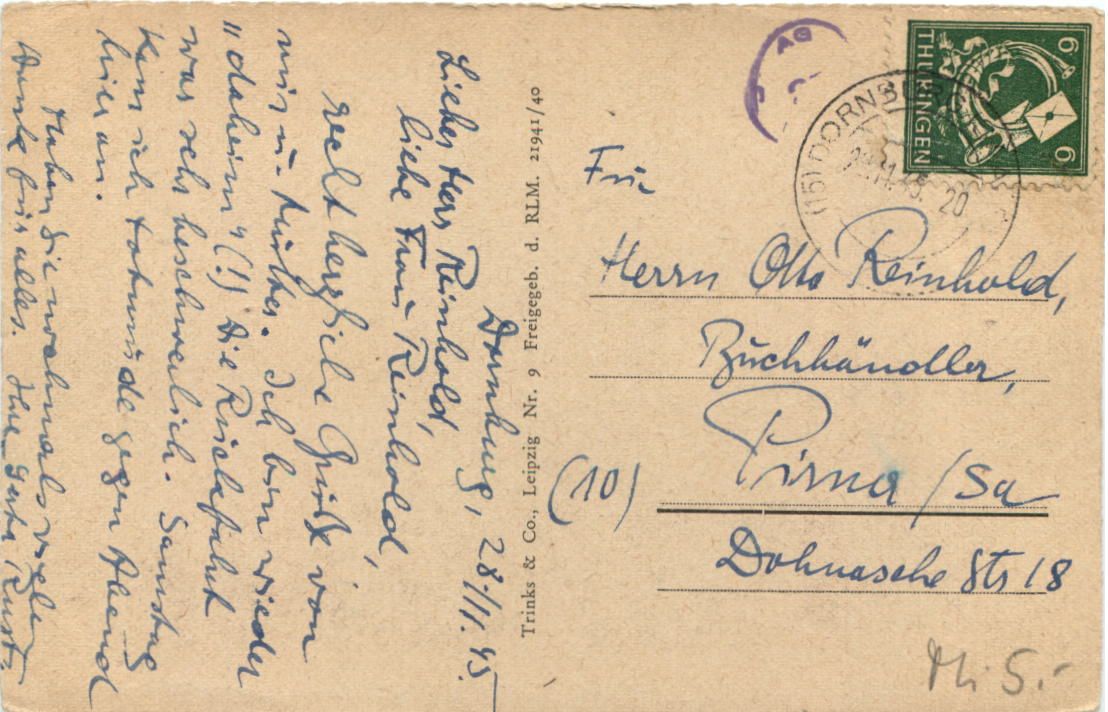 Dornburg, 28/11. 45.
Lieber Herr Reinhold,
liebe Frau Reinhold,
recht herzliche Grüße von
mir u. Mutter. Ich bin wieder
"daheim"(!) Die Rückfahrt
war sehr beschwerlich. Samstag
kam ich totmüde gegen Abend
hier an.
Haben Sie nochmals vielen
Dank für alles. Ihre Rust.
Trinks & Co., Leipzig Nr. 9 Freigegeb. d. RLM. 21941/40
AG
THÜRINGEN
6
6
(15) DORNBURG
20
Für
Herrn Otto Reinhold,
Buchhändler,
(10) Pirna/Sa
Dohnasche Str 18
Mi 5.-